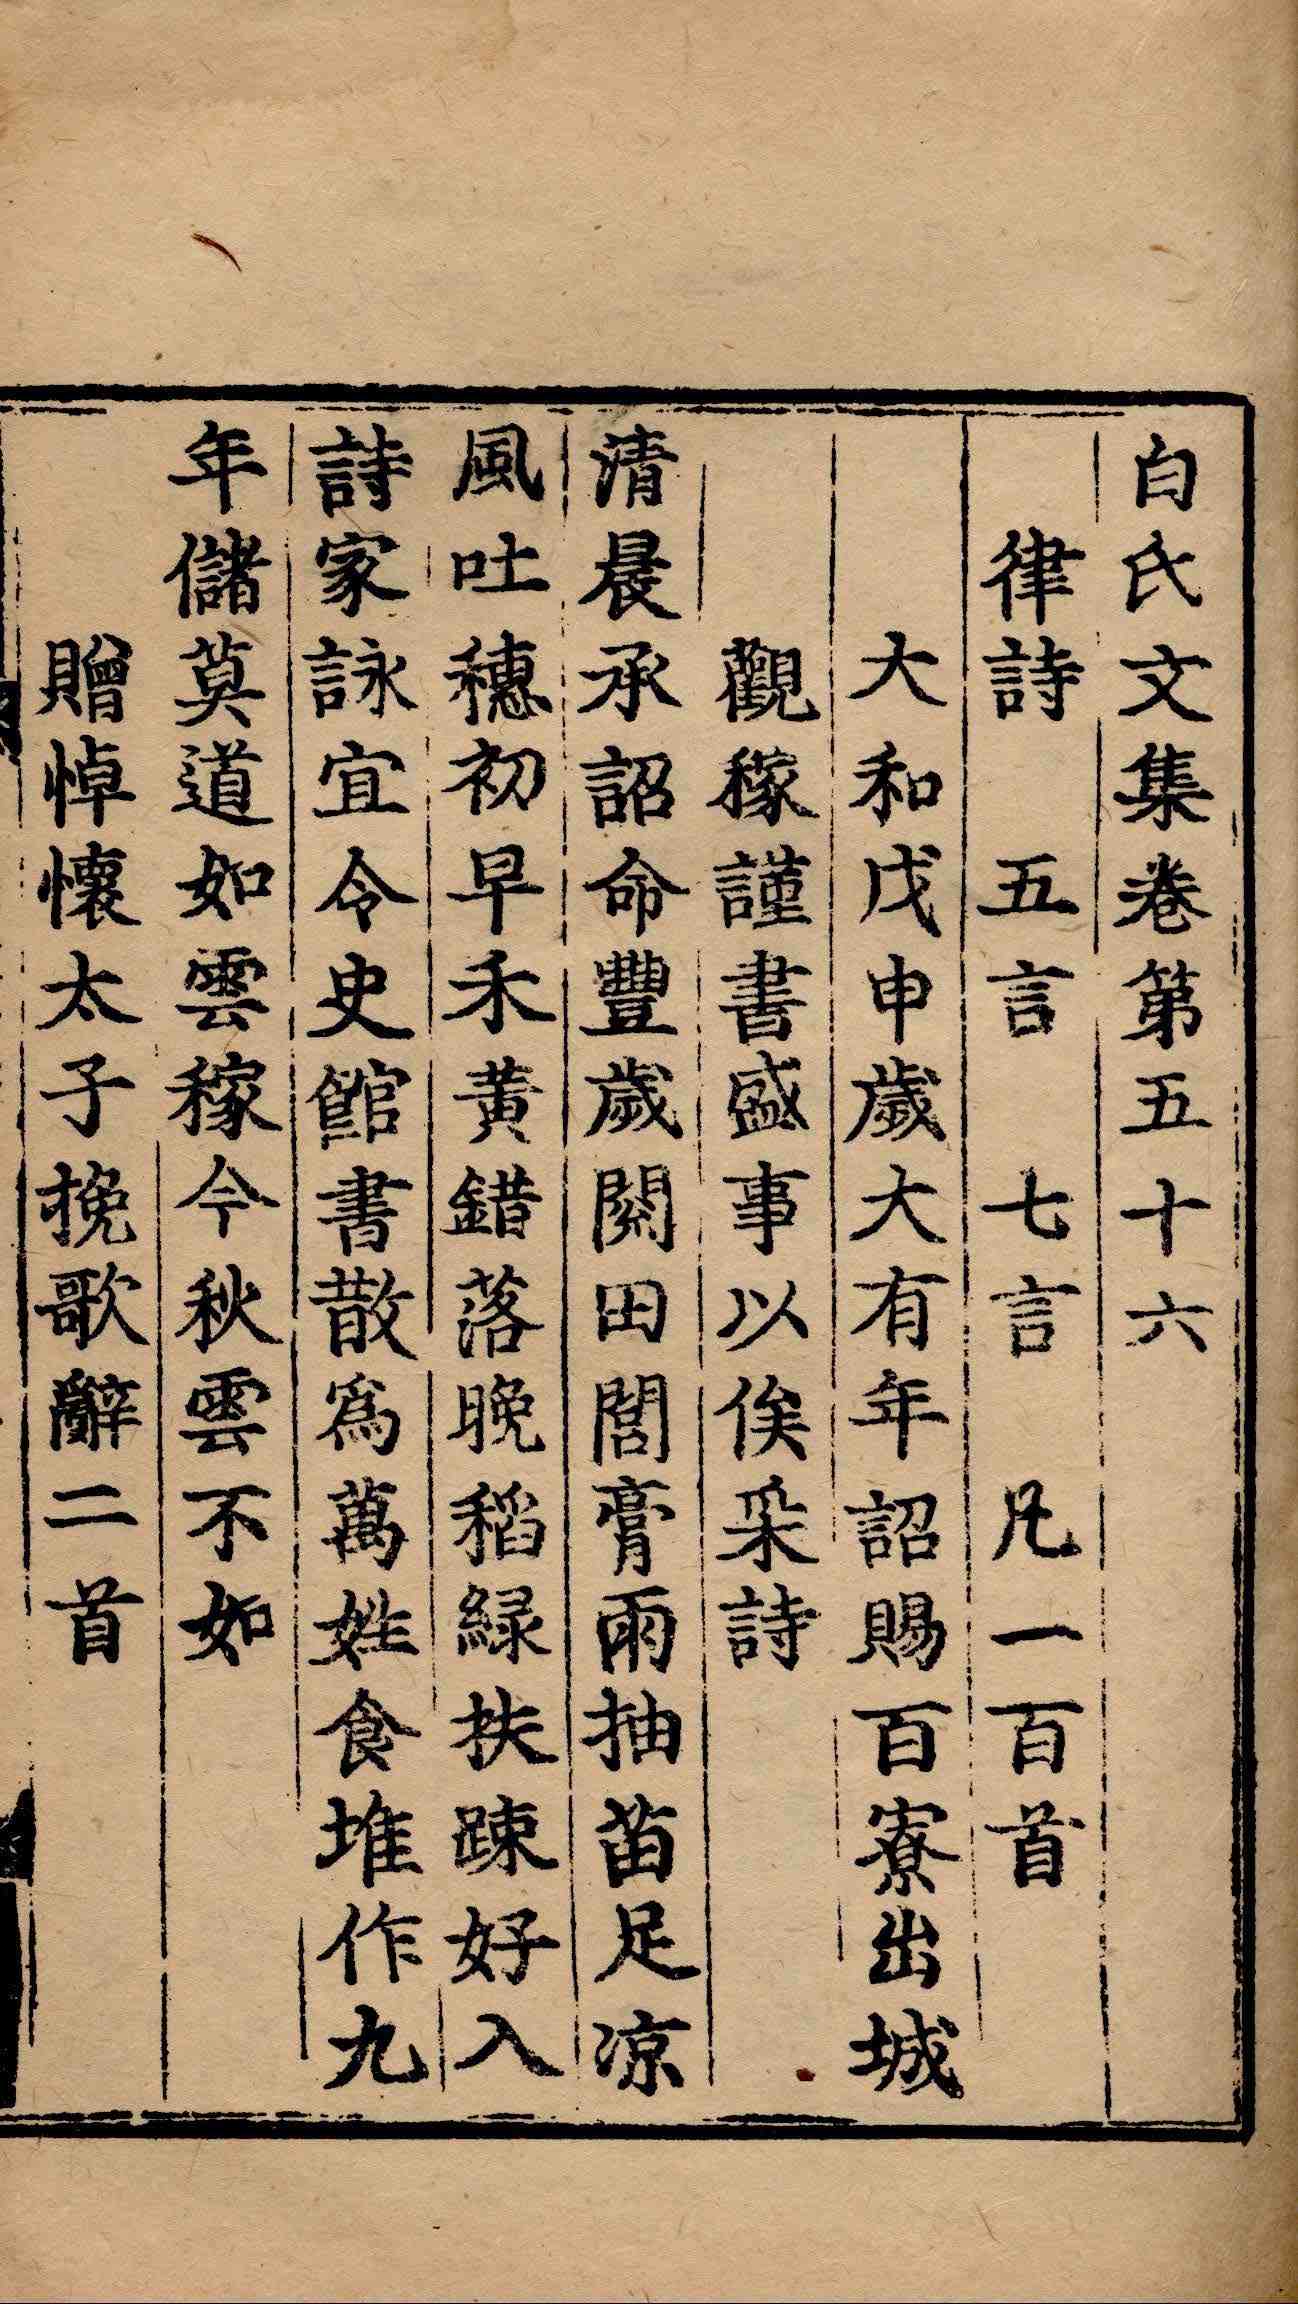 白氏文集卷第五十六
律詩　五言　七言　凡一百首
大和戊申歲大有年詔賜百寮出城
觀稼謹書盛事以俟采詩
清晨承詔命豐歲閱田閭膏雨抽苗足凉
風吐穗初早禾黃錯落晚稻緑扶踈好入
詩家詠宜令史館書散爲萬姓食堆作九
年儲莫道如雲稼今秋雲不如
贈悼懷太子挽歌辭二首